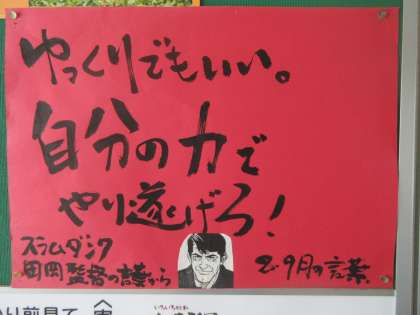 ゆっくりでもいい。
自分の力で
やり遂げろ！
スラムダンク
田岡監督の言葉から
2・9月の言葉